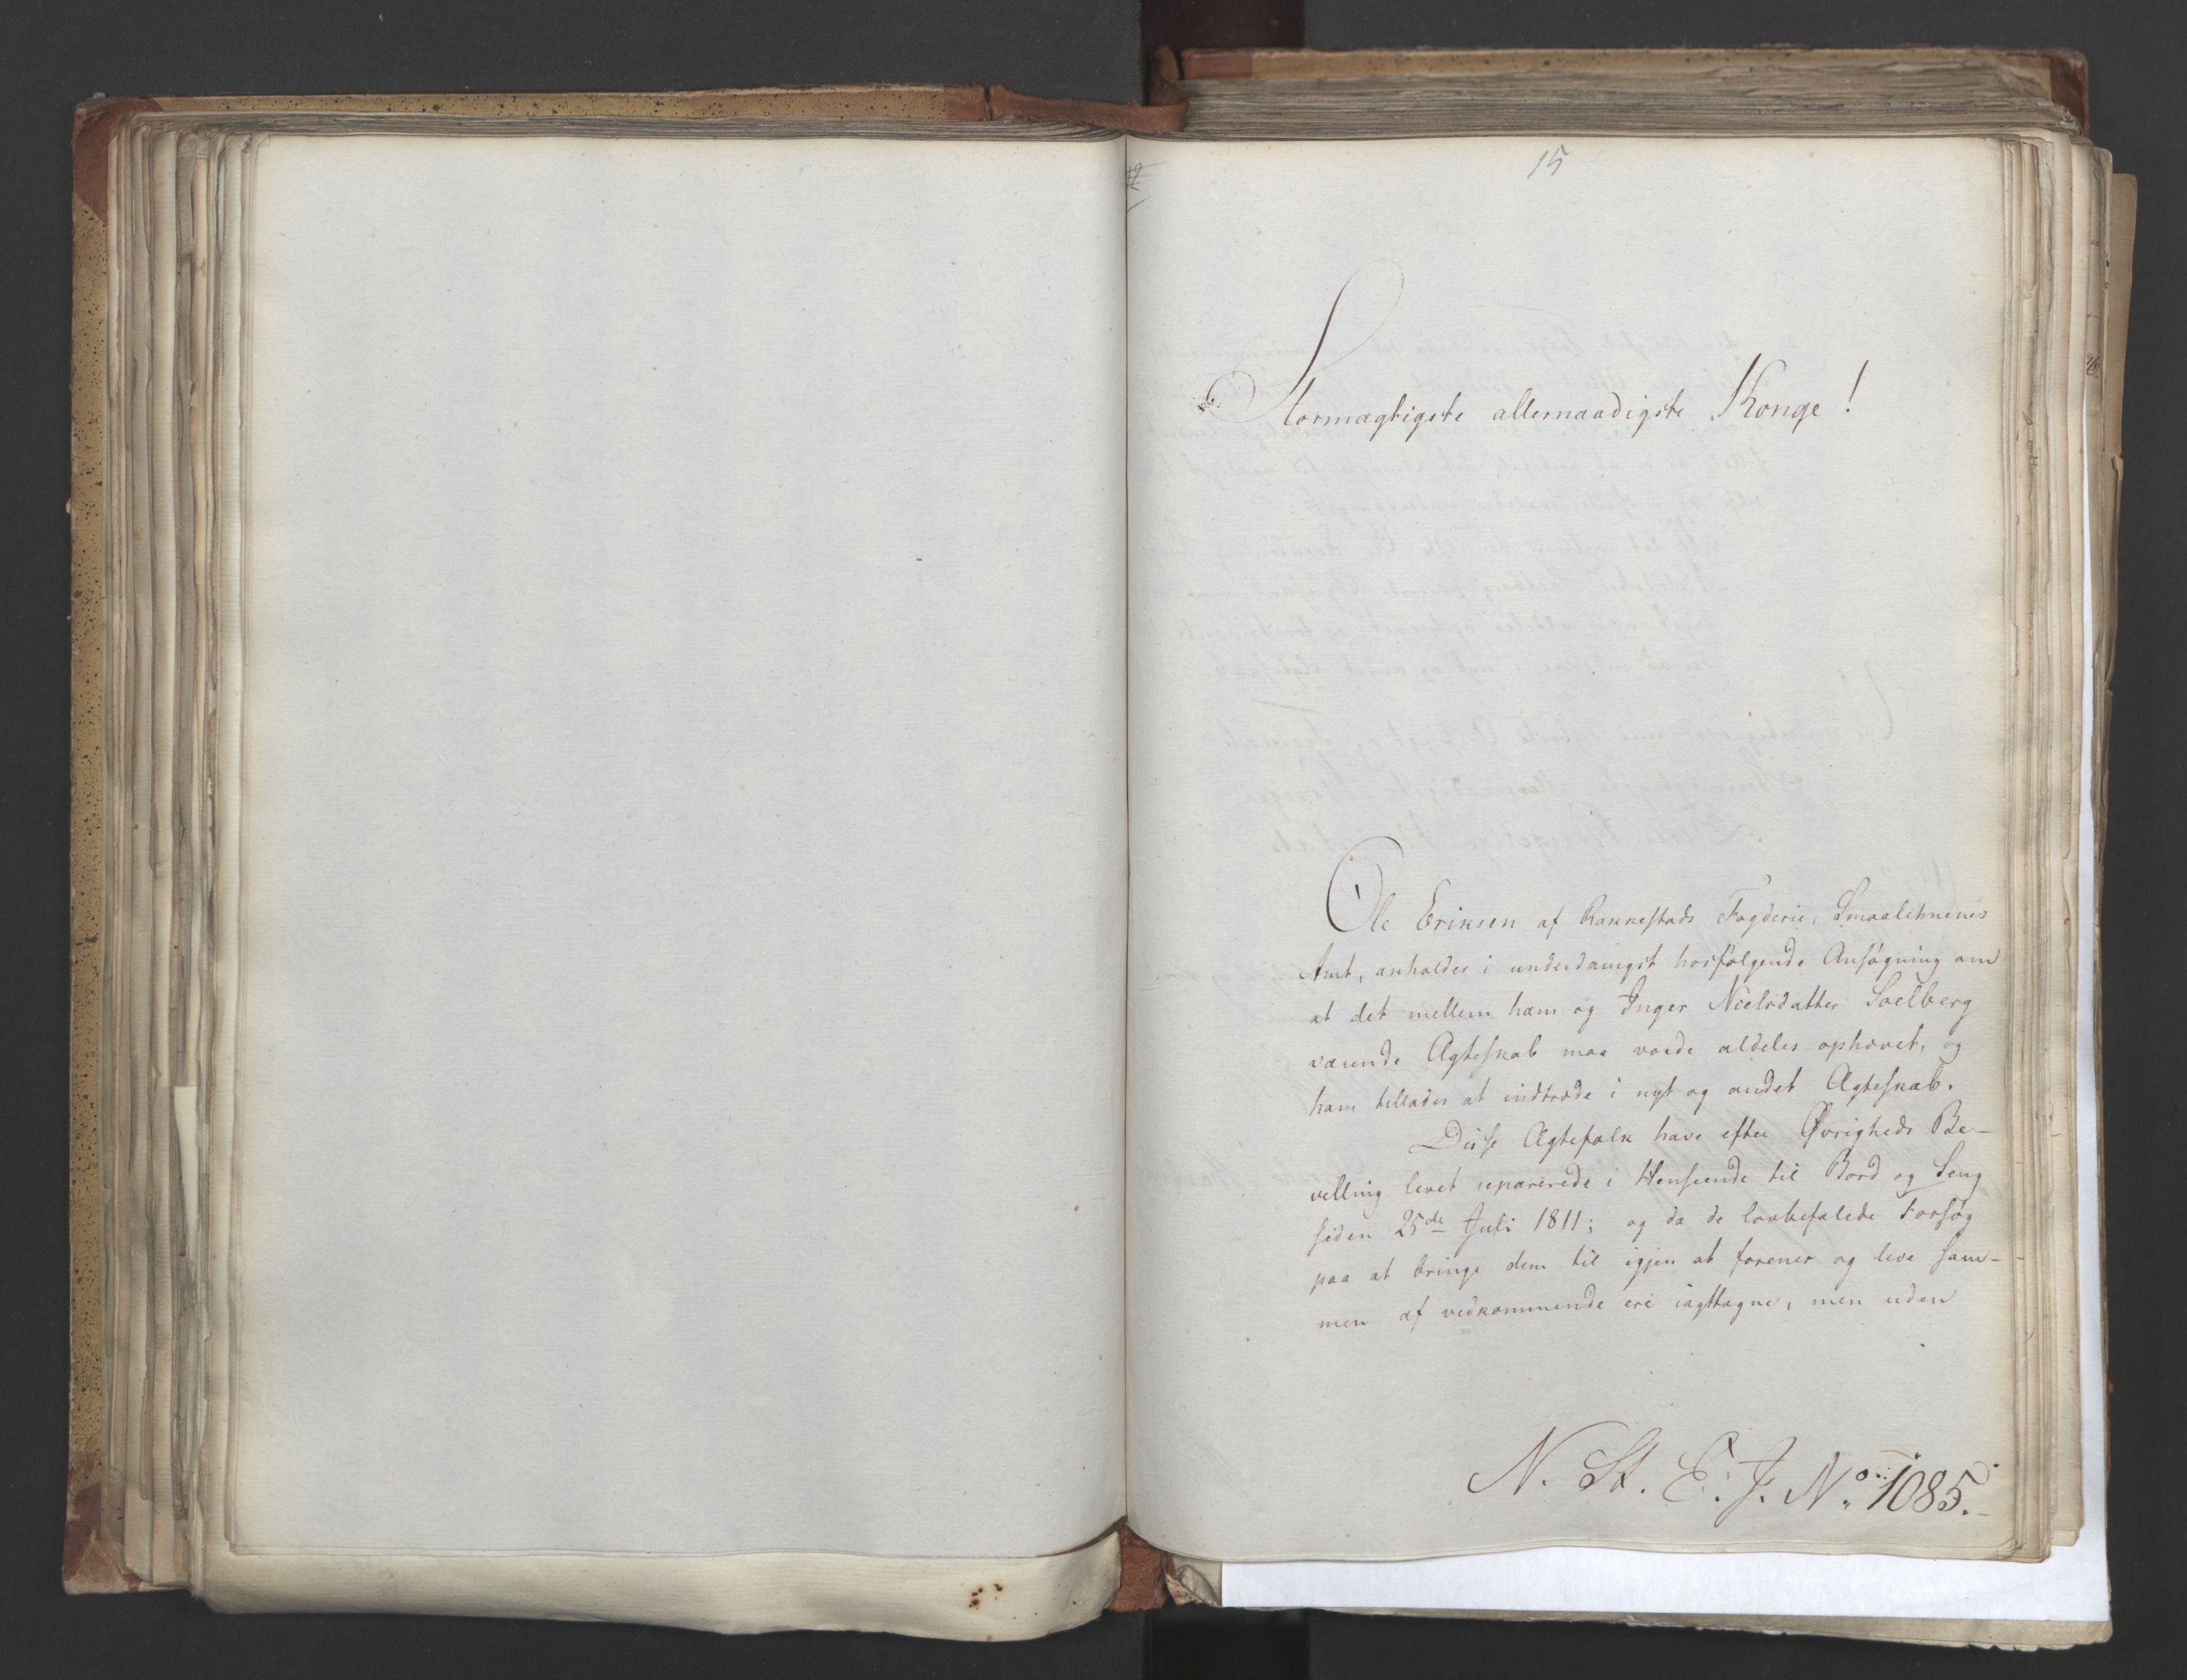 15
Stormægtigste allernaadigste Konge!
Ole Eriksen af Rakkestads Fogderie, Smaalehnenes
Amt, anholder i underdanigst hosfølgende Ansøgning om
at det mellem ham og Inger Nielsdatter Soelberg
værende Ægteskab maa vorde aldeles ophævet, og
ham tillades at indtræde i nyt og andet Ægteskab.
Disse Ægtefolk have efter Øvrigheds Be-
villing levet separerede i Henseende til Bord og Seng
siden 25de Juli 1811; og da de lovbefalede Forsøg
paa at bringe dem til igjen at forenes og leve sam-
men af vedkommende ere iagttagne, men uden
N. St. E. J. No. 1085.